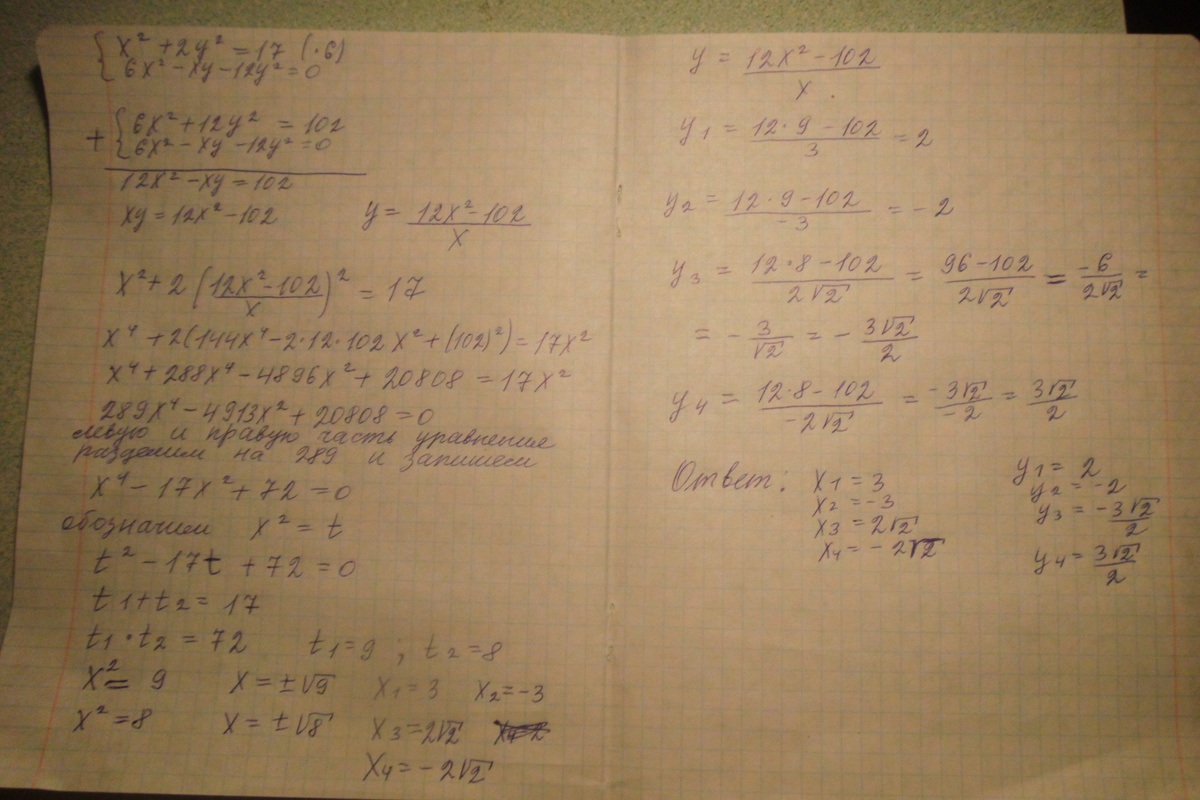 { x² + 2y² = 17 (·6)
6x² - xy - 12y² = 0
+ { 6x² + 12y² = 102
6x² - xy - 12y² = 0
12x² - xy = 102
xy = 12x² - 102    y = (12x² - 102)/x
x² + 2 ((12x² - 102)/x)² = 17
x⁴ + 2(144x⁴ - 2·12·102x² + (102)²) = 17x²
x⁴ + 288x⁴ - 4896x² + 20808 = 17x²
289x⁴ - 4913x² + 20808 = 0
левую и правую часть уравнения
разделим на 289 и запишем
x⁴ - 17x² + 72 = 0
обозначим x² = t
t² - 17t + 72 = 0
t1 + t2 = 17
t1 · t2 = 72    t1 = 9 ; t2 = 8
x² = 9    x = ±√9    x1 = 3    x2 = -3
x² = 8    x = ±√8    x3 = 2√2
x4 = - 2√2
y = (12x² - 102)/x
y1 = (12·9 - 102)/3 = 2
y2 = (12·9 - 102)/-3 = -2
y3 = (12·8 - 102)/2√2 = (96 - 102)/2√2 = -6/2√2 =
= - 3/√2 = - 3√2/2
y4 = (12·8 - 102)/-2√2 = -3√2/-2 = 3√2/2
Ответ: x1 = 3    y1 = 2
x2 = -3    y2 = -2
x3 = 2√2    y3 = -3√2/2
x4 = - 2√2    y4 = 3√2/2